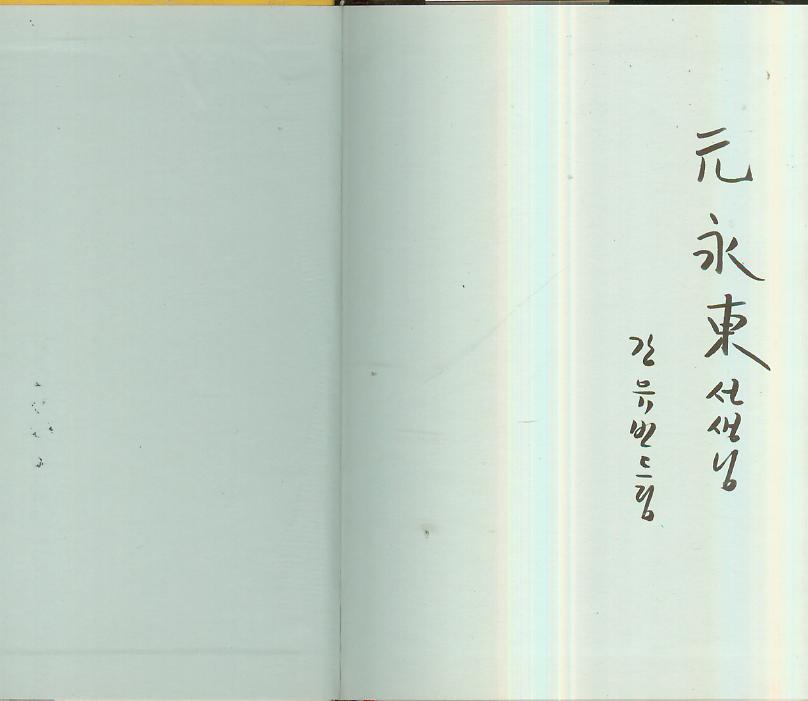 元永東 선생님
강유빈 드림